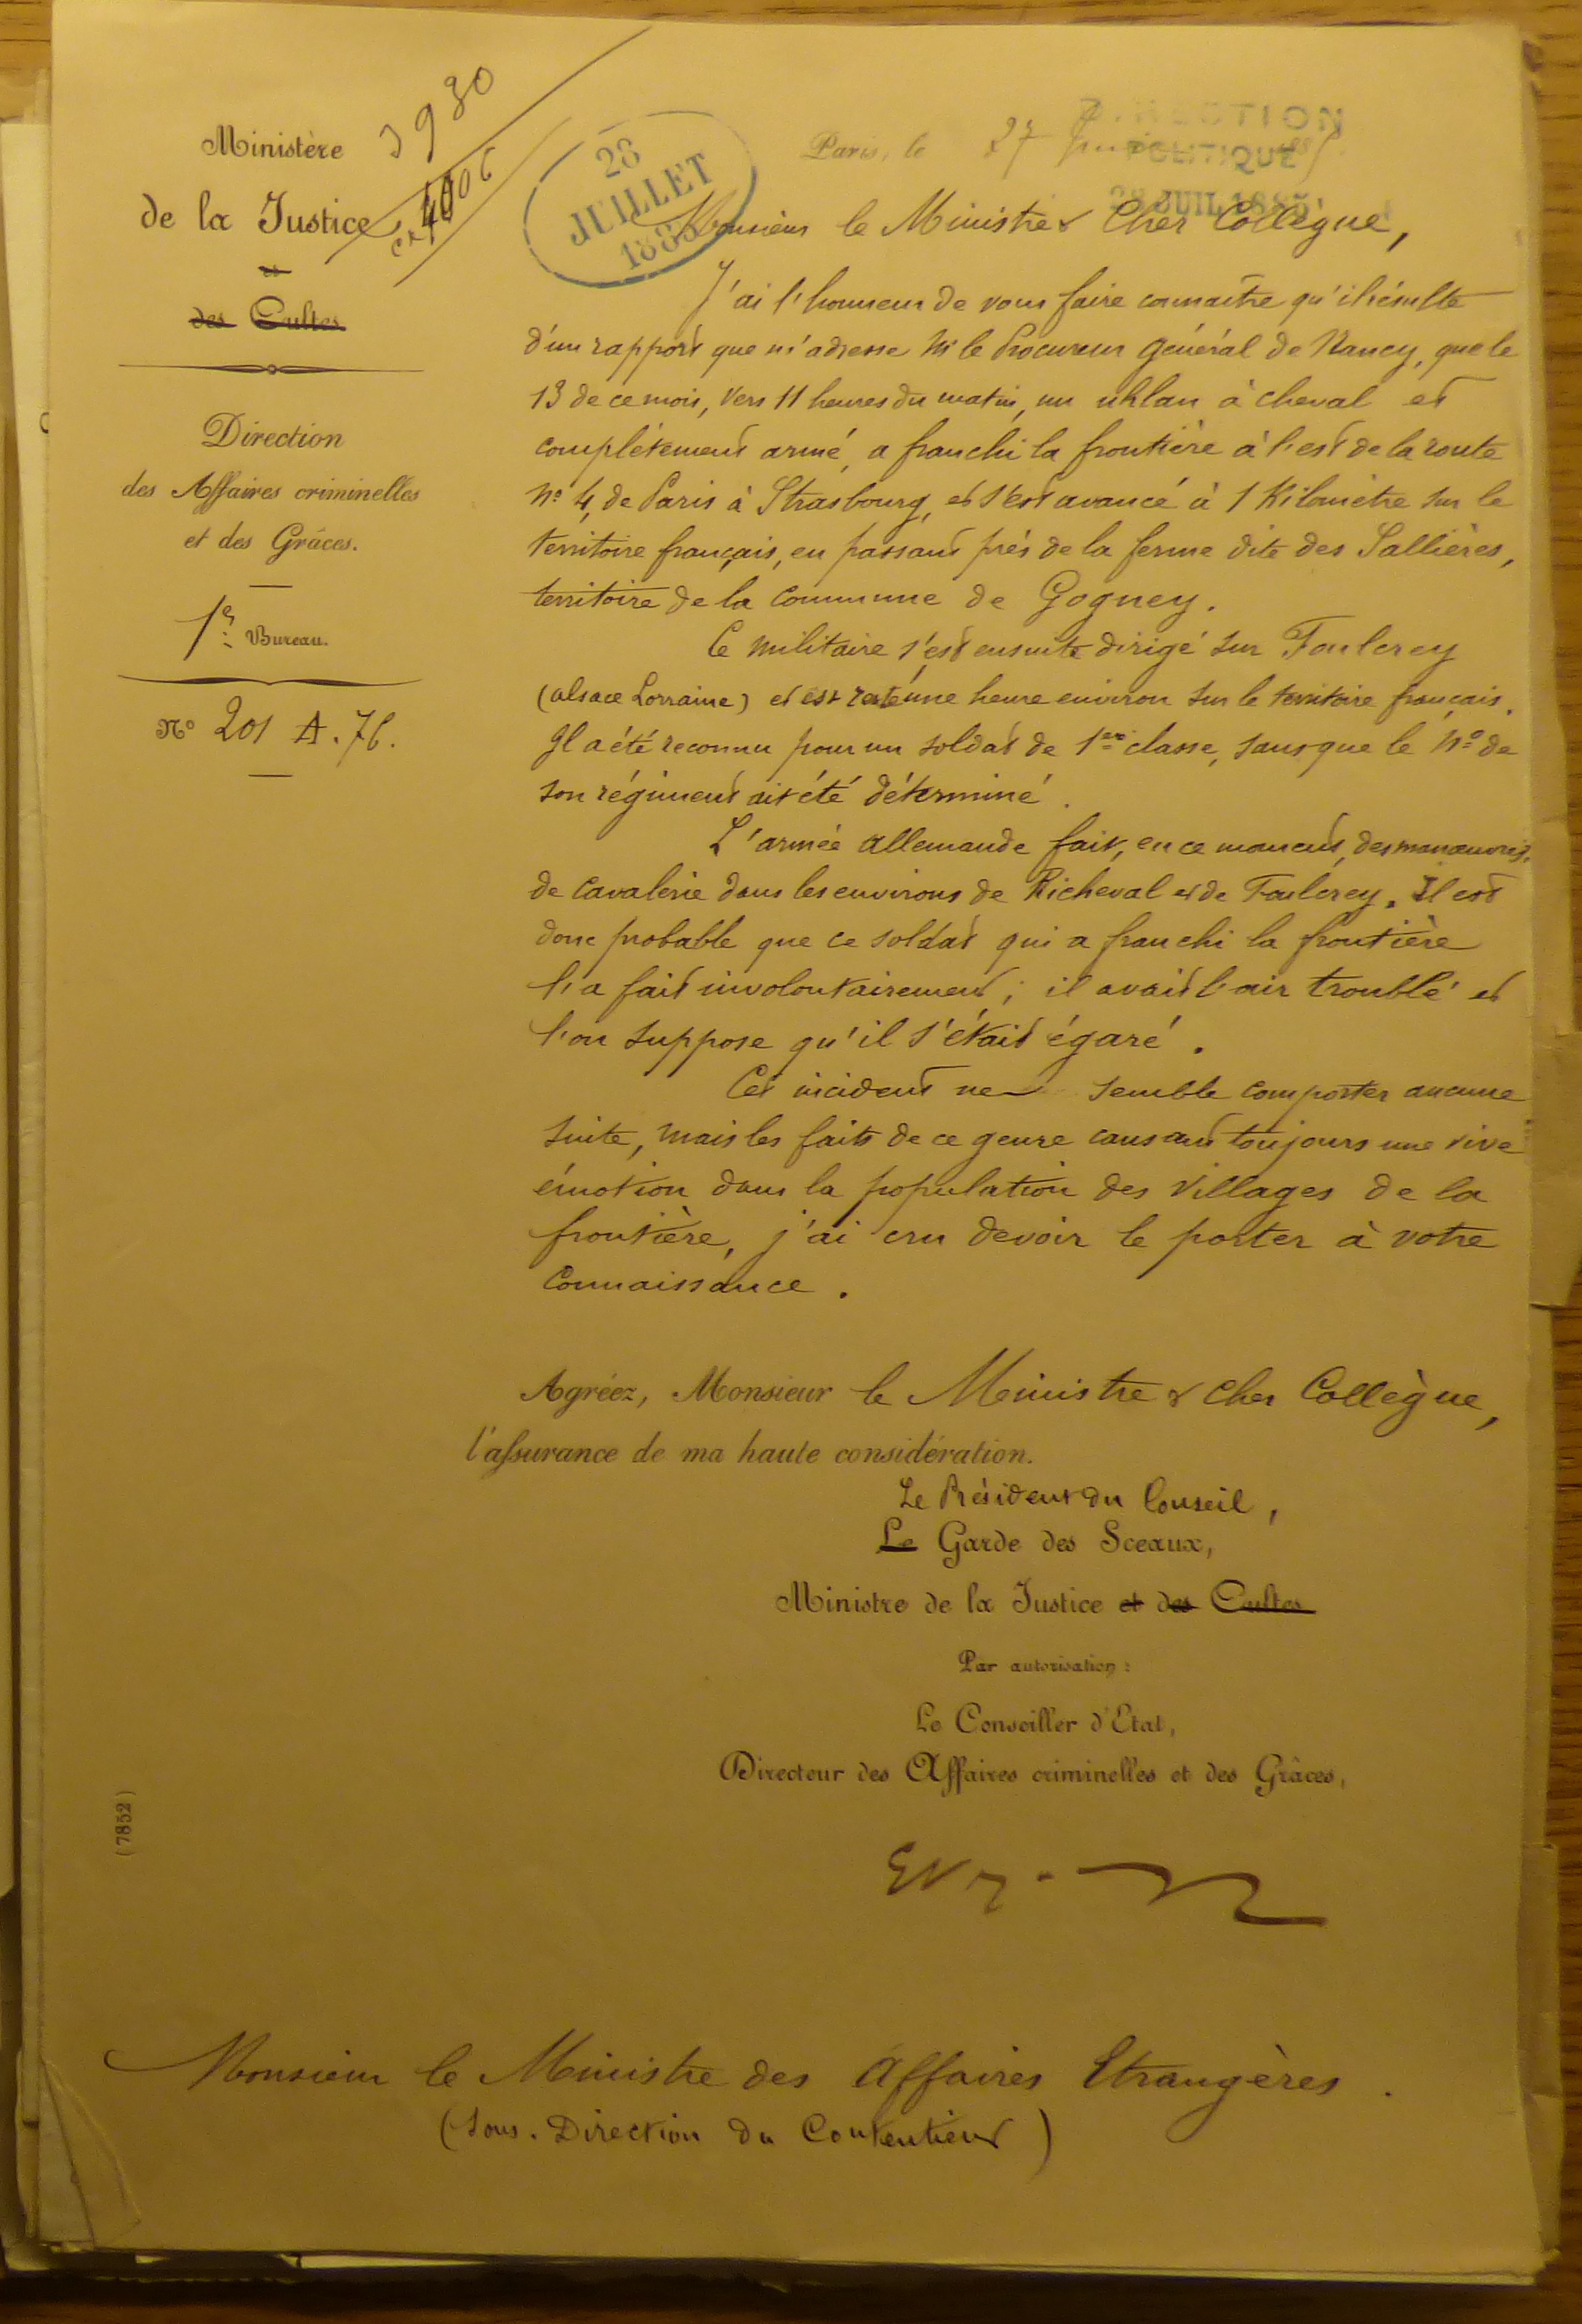 3980
Ministère
de la Justice
et
des Cultes
Direction
des Affaires criminelles
et des Grâces.
1er Bureau.
No 201 A. 76.
28
JUILLET
1885
Paris, le 27
DIRECTION
POLITIQUE
28 JUIL 1885
Monsieur le Ministre & Cher Collègue,
J'ai l'honneur de vous faire connaître qu'il résulte
d'un rapport que m'adresse Mr le Procureur Général de Nancy, que le
13 de ce mois, vers 11 heures du matin, un uhlan à cheval et
complétement armé, a franchi la frontière à l'est de la route
No 4, de Paris à Strasbourg, et s'est avancé à 1 Kilomètre sur le
territoire français, en passant près de la ferme dite des Sallières,
territoire de la Commune de Gogney.
Ce militaire s'est ensuite dirigé sur Foulcrey
(alsace Lorraine) et est resté une heure environ sur le territoire français.
Il a été reconnu pour un soldat de 1ere classe, sans que le No de
son régiment ait été déterminé.
L'armée allemande fait, en ce moment, des manœuvres,
de cavalerie dans les environs de Richeval et de Foulcrey. Il est
donc probable que ce soldat qui a franchi la frontière
l'a fait involontairement ; il avait l'air troublé et
l'on suppose qu'il s'était égaré.
Cet incident ne semble comporter aucune
suite, mais les faits de ce genre causant toujours une vive
émotion dans la population des villages de la
frontière, j'ai cru devoir le porter à votre
connaissance.
Agréez, Monsieur le Ministre & cher Collègue,
l'assurance de ma haute considération.
Le Président du Conseil,
Le Garde des Sceaux,
Ministre de la Justice et des Cultes
Par autorisation :
Le Conseiller d'Etat,
Directeur des Affaires criminelles et des Grâces,
(7852)
Monsieur le Ministre des Affaires Etrangères.
(Sous-Direction du Contentieux)